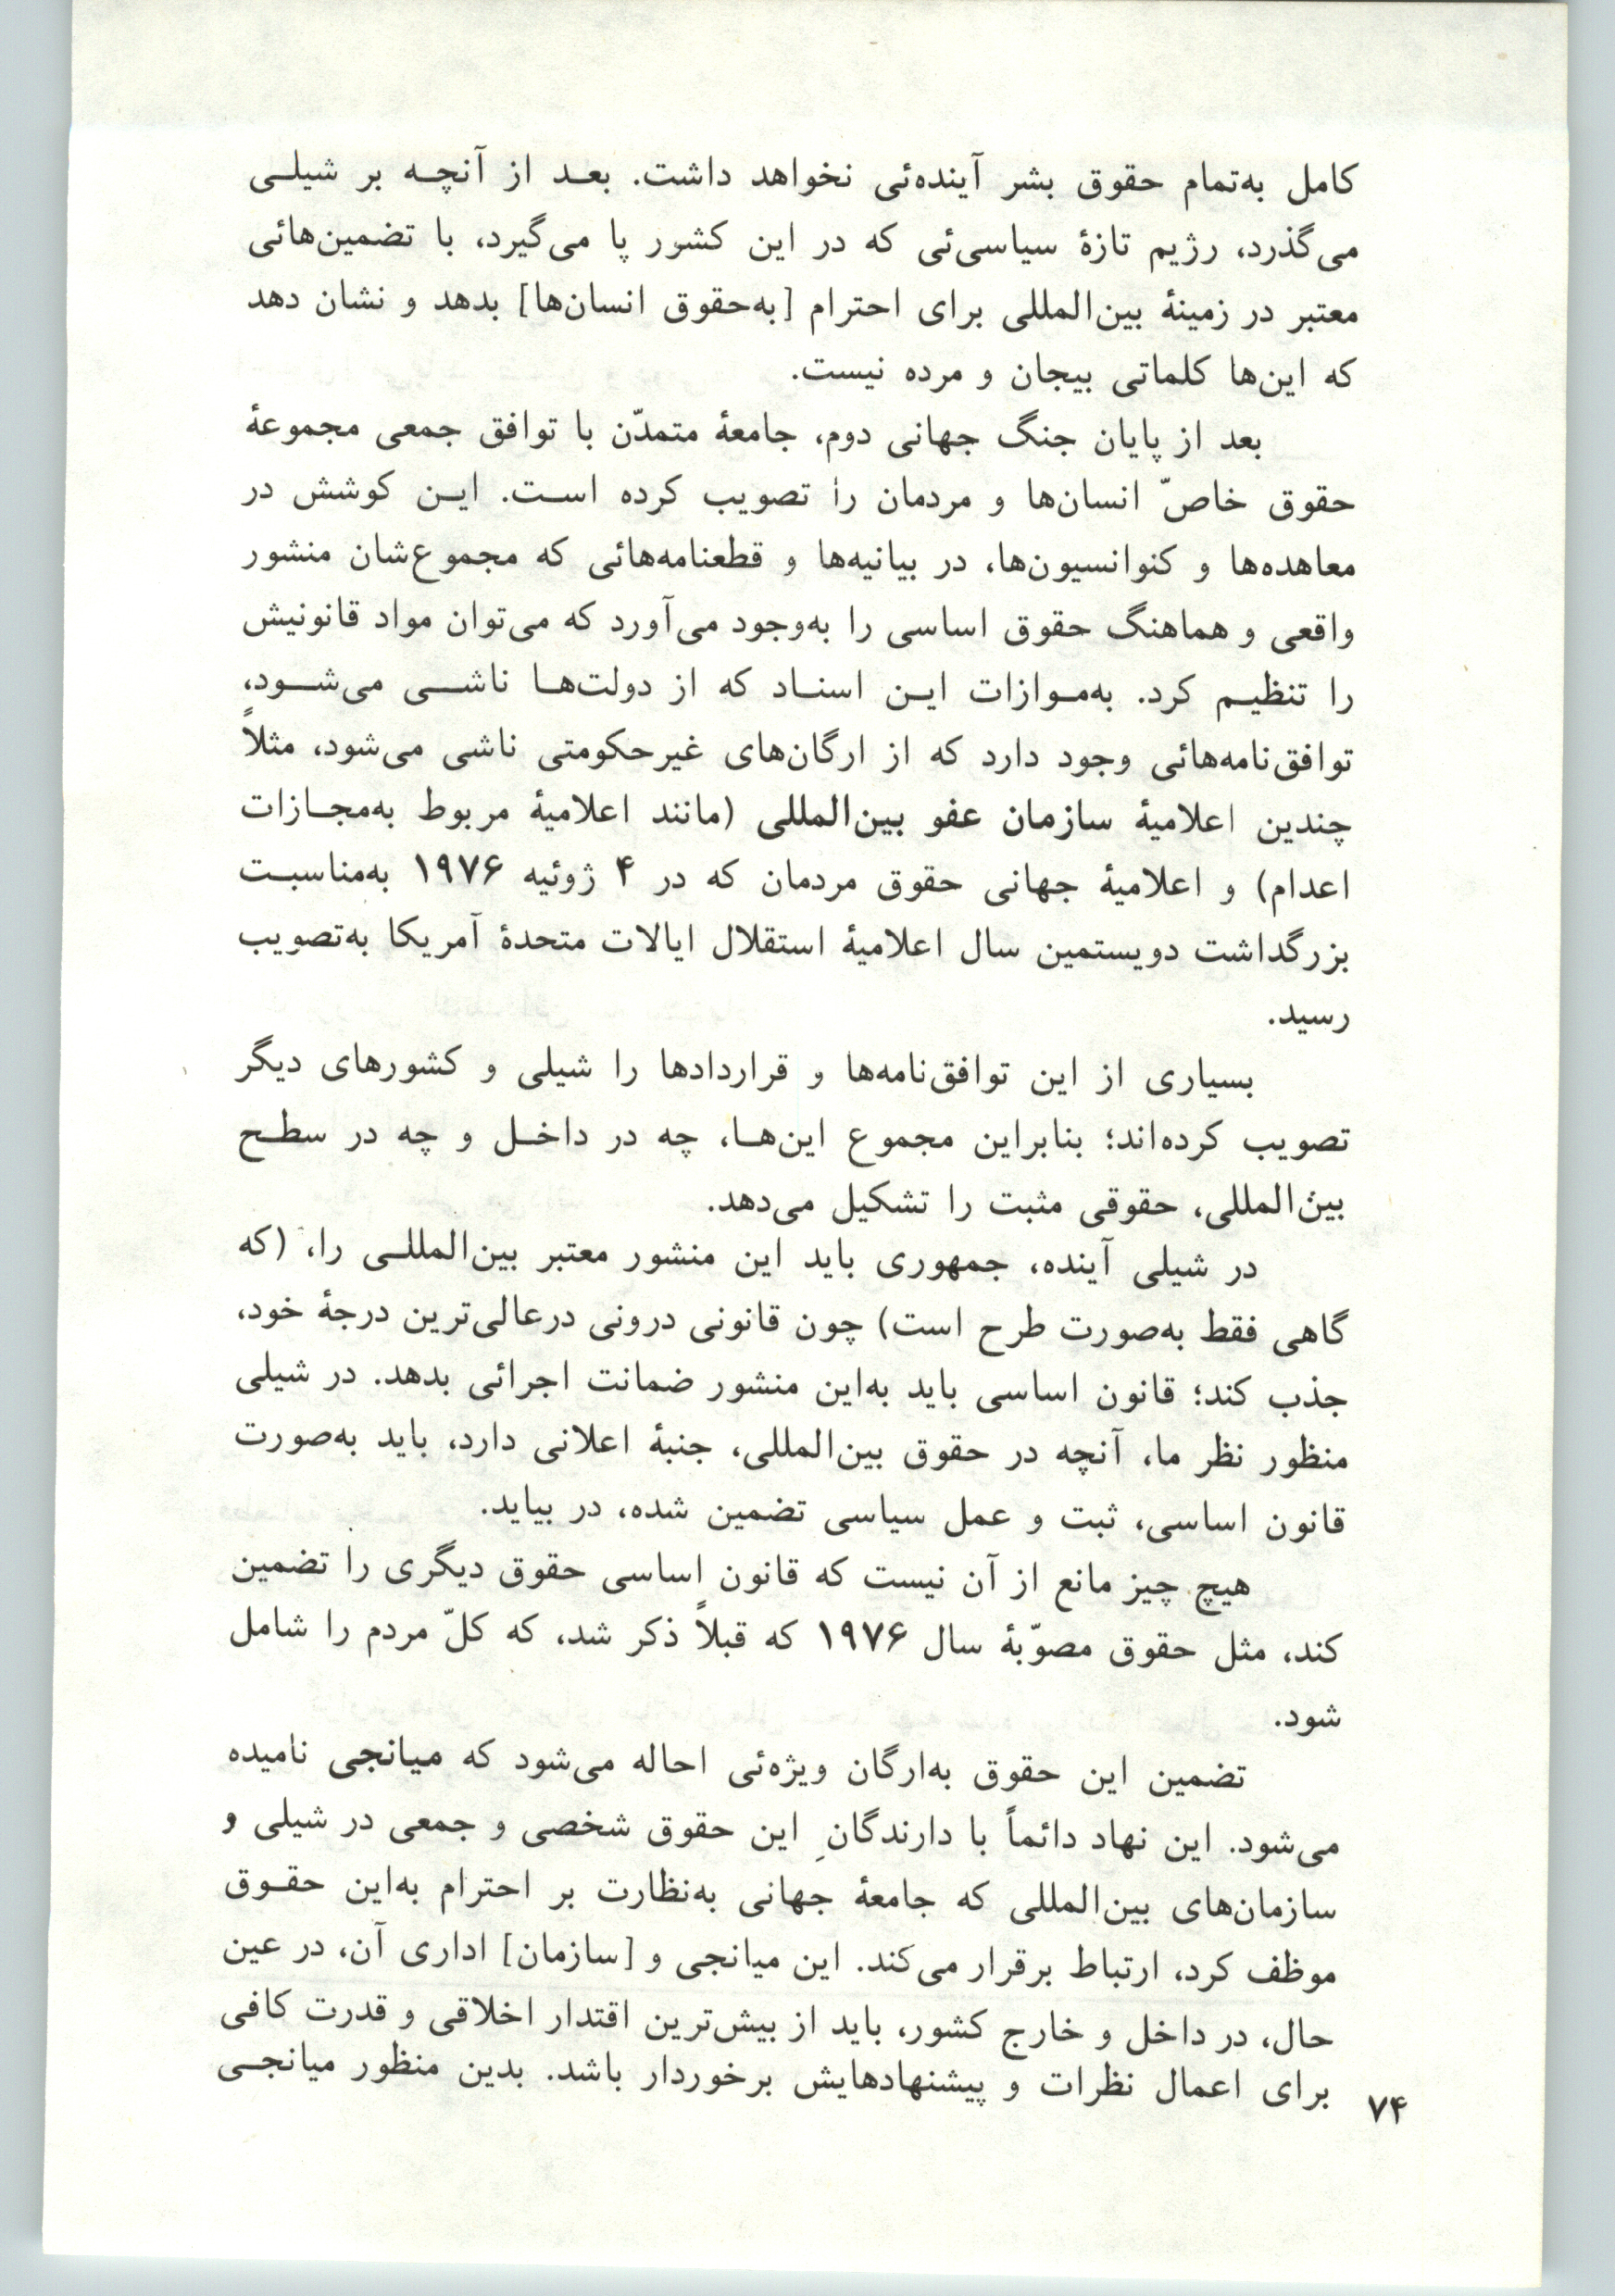 کامل به‌تمام حقوق بشر آینده‌ئی نخواهد داشت. بعـد از آنچـه بر شیلـی
می‌گذرد، رژیم تازهٔ سیاسی‌ئی که در این کشور پا می‌گیرد، با تضمین‌هائی
معتبر در زمینهٔ بین‌المللی برای احترام [به‌حقوق انسان‌ها] بدهد و نشان دهد
که این‌ها کلماتی بیجان و مرده نیست.
بعد از پایان جنگ جهانی دوم، جامعهٔ متمدّن با توافق جمعی مجموعهٔ
حقوق خاصّ انسان‌ها و مردمان را تصویب کرده اسـت. ایـن کوشش در
معاهده‌ها و کنوانسیون‌ها، در بیانیه‌ها و قطعنامه‌هائی که مجموع‌شان منشور
واقعی و هماهنگ حقوق اساسی را به‌وجود می‌آورد که می‌توان مواد قانونیش
را تنظیـم کرد. به‌مـوازات ایـن اسنـاد که از دولت‌هـا ناشـی می‌شـود،
توافق‌نامه‌هائی وجود دارد که از ارگان‌های غیرحکومتی ناشی می‌شود، مثلاً
چندین اعلامیهٔ سازمان عفو بین‌المللی (مانند اعلامیهٔ مربوط به‌مجـازات
اعدام) و اعلامیهٔ جهانی حقوق مردمان که در ۴ ژوئیه ۱۹۷۶ به‌مناسبـت
بزرگداشت دویستمین سال اعلامیهٔ استقلال ایالات متحدهٔ آمریکا به‌تصویب
رسید.
بسیاری از این توافق‌نامه‌ها و قراردادها را شیلی و کشورهای دیگر
تصویب کرده‌اند؛ بنابراین مجموع این‌هـا، چه در داخـل و چه در سطـح
بین‌المللی، حقوقی مثبت را تشکیل می‌دهد.
در شیلی آینده، جمهوری باید این منشور معتبر بین‌المللـی را، (که
گاهی فقط به‌صورت طرح است) چون قانونی درونی درعالی‌ترین درجهٔ خود،
جذب کند؛ قانون اساسی باید به‌این منشور ضمانت اجرائی بدهد. در شیلی
منظور نظر ما، آنچه در حقوق بین‌المللی، جنبهٔ اعلانی دارد، باید به‌صورت
قانون اساسی، ثبت و عمل سیاسی تضمین شده، در بیاید.
هیچ چیز مانع از آن نیست که قانون اساسی حقوق دیگری را تضمین
کند، مثل حقوق مصوّبهٔ سال ۱۹۷۶ که قبلاً ذکر شد، که کلّ مردم را شامل
شود.
تضمین این حقوق به‌ارگان ویژه‌ئی احاله می‌شود که میانجی نامیده
می‌شود. این نهاد دائماً با دارندگانِ این حقوق شخصی و جمعی در شیلی و
سازمان‌های بین‌المللی که جامعهٔ جهانی به‌نظارت بر احترام به‌این حقـوق
موظف کرد، ارتباط برقرار می‌کند. این میانجی و [سازمان] اداری آن، در عین
حال، در داخل و خارج کشور، باید از بیش‌ترین اقتدار اخلاقی و قدرت کافی
برای اعمال نظرات و پیشنهادهایش برخوردار باشد. بدین منظور میانجـی
۷۴